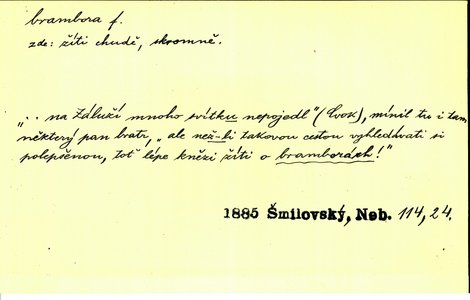 brambora f.
zde: žíti chudě, skromně.
„.. na Záluží mnoho svítku nepojedl" (Cvok), mínil tu i tam
některý pan bratr, „ale než-li takovou cestou vyhledávati si
polepšenou, toť lépe knězi žíti o bramborách!"
1885 Šmilovský, Neb. 114, 24.